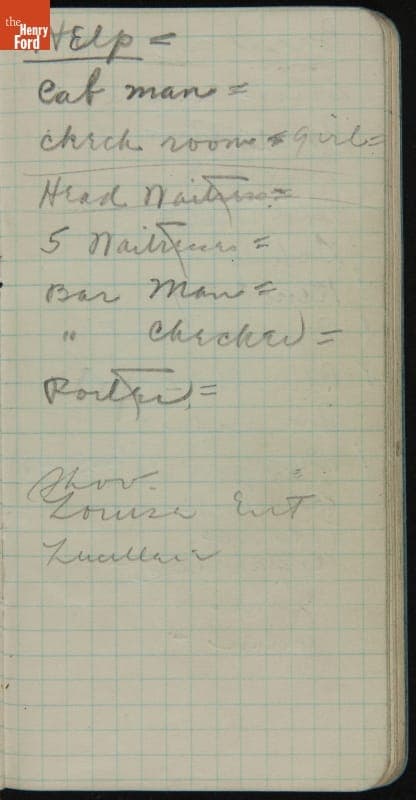 the
Henry
Ford
HElp =
Cab man =
check room = girl =
Head Waitress =
5 Waitresses =
Bar Man =
" Checker =
Porter =
Show.
Louise Ent